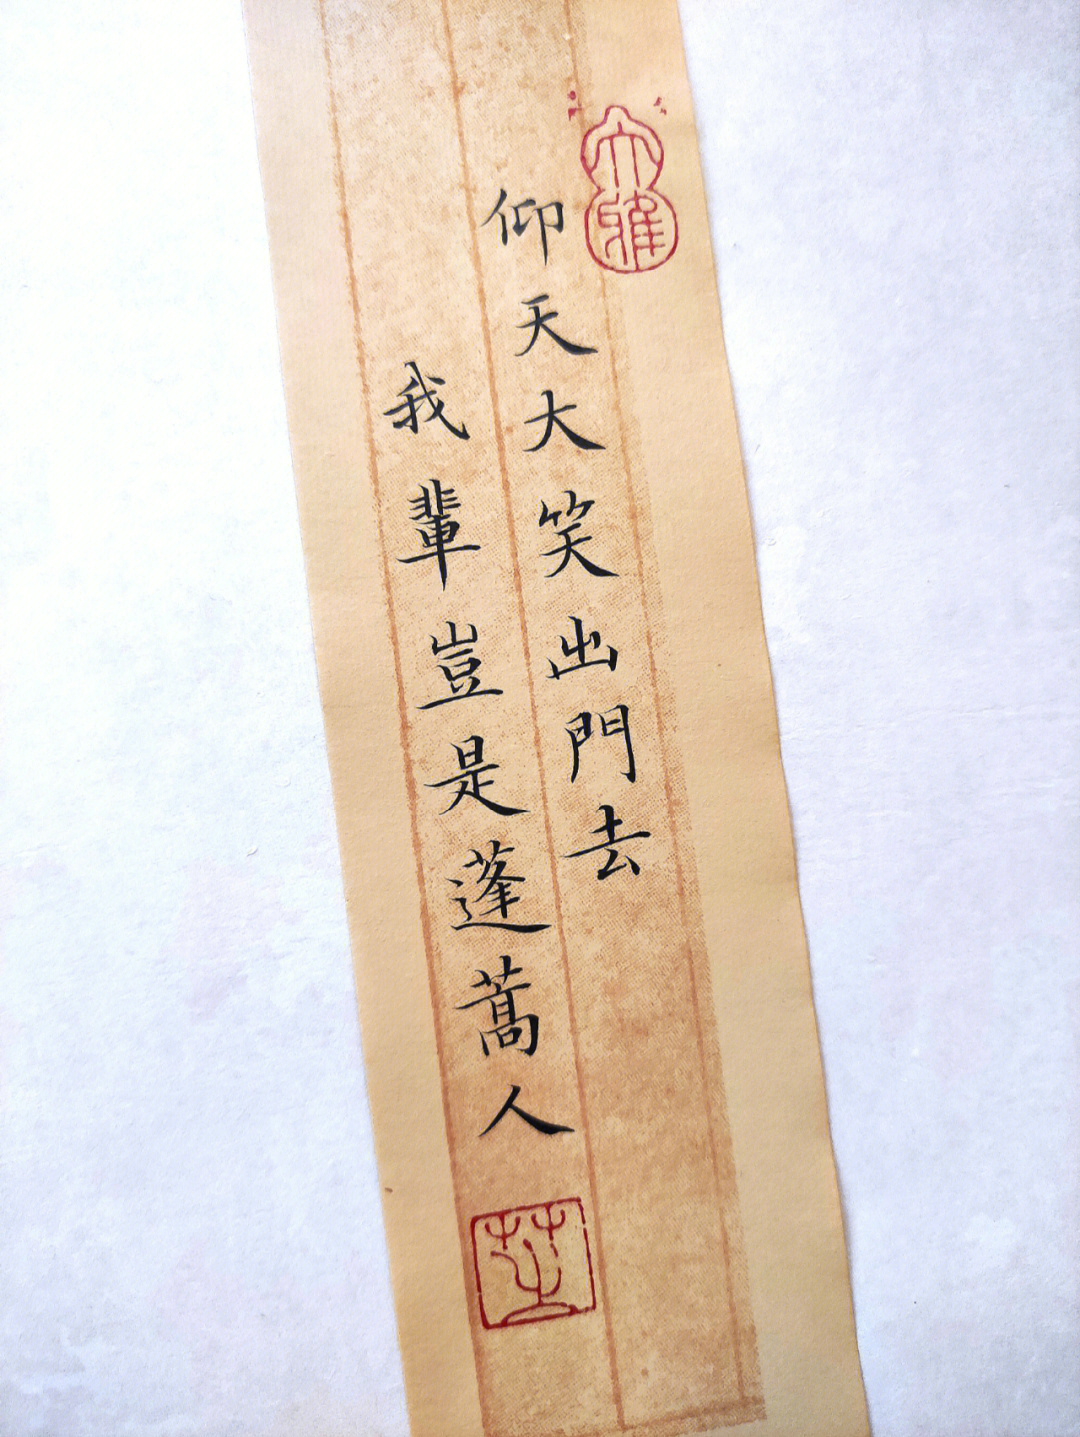 仰天大笑出門去
我輩豈是蓬蒿人
大雅